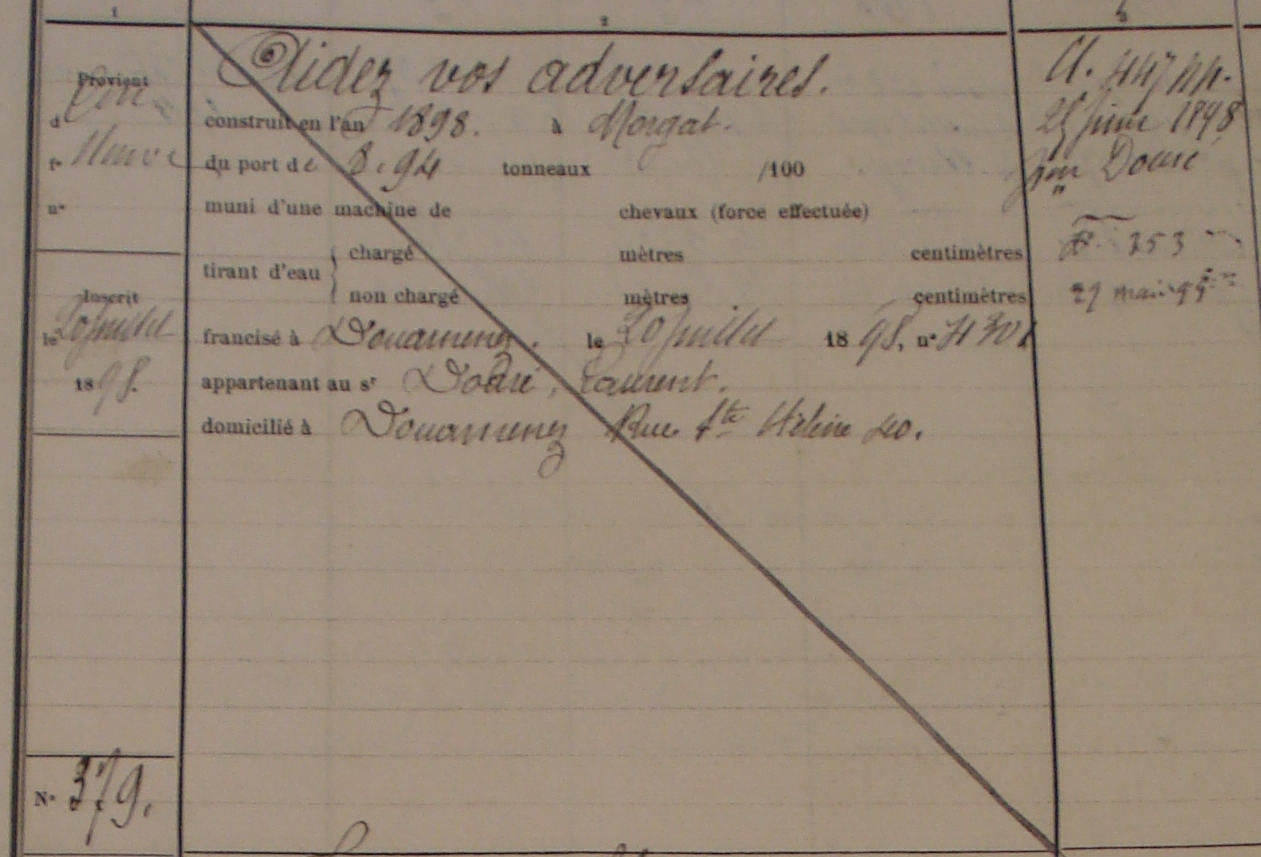 1
Provient
d
Neuve
fo
no
Inscrit
le 20 juillet
1898.
No 379.
2
Aidez vos adversaires.
construit en l'an 1898. à Morgat.
du port de 8.94 tonneaux /100
muni d'une machine de chevaux (force effectuée)
tirant d'eau { chargé mètres centimètres
non chargé mètres centimètres
francisé à Douarnenez. le 20 juillet 1898, no
appartenant au sr Doaré, Laurent.
domicilié à Douarnenez Rue Ste Hélène 20.
3
25 juin 1898
Doaré
353